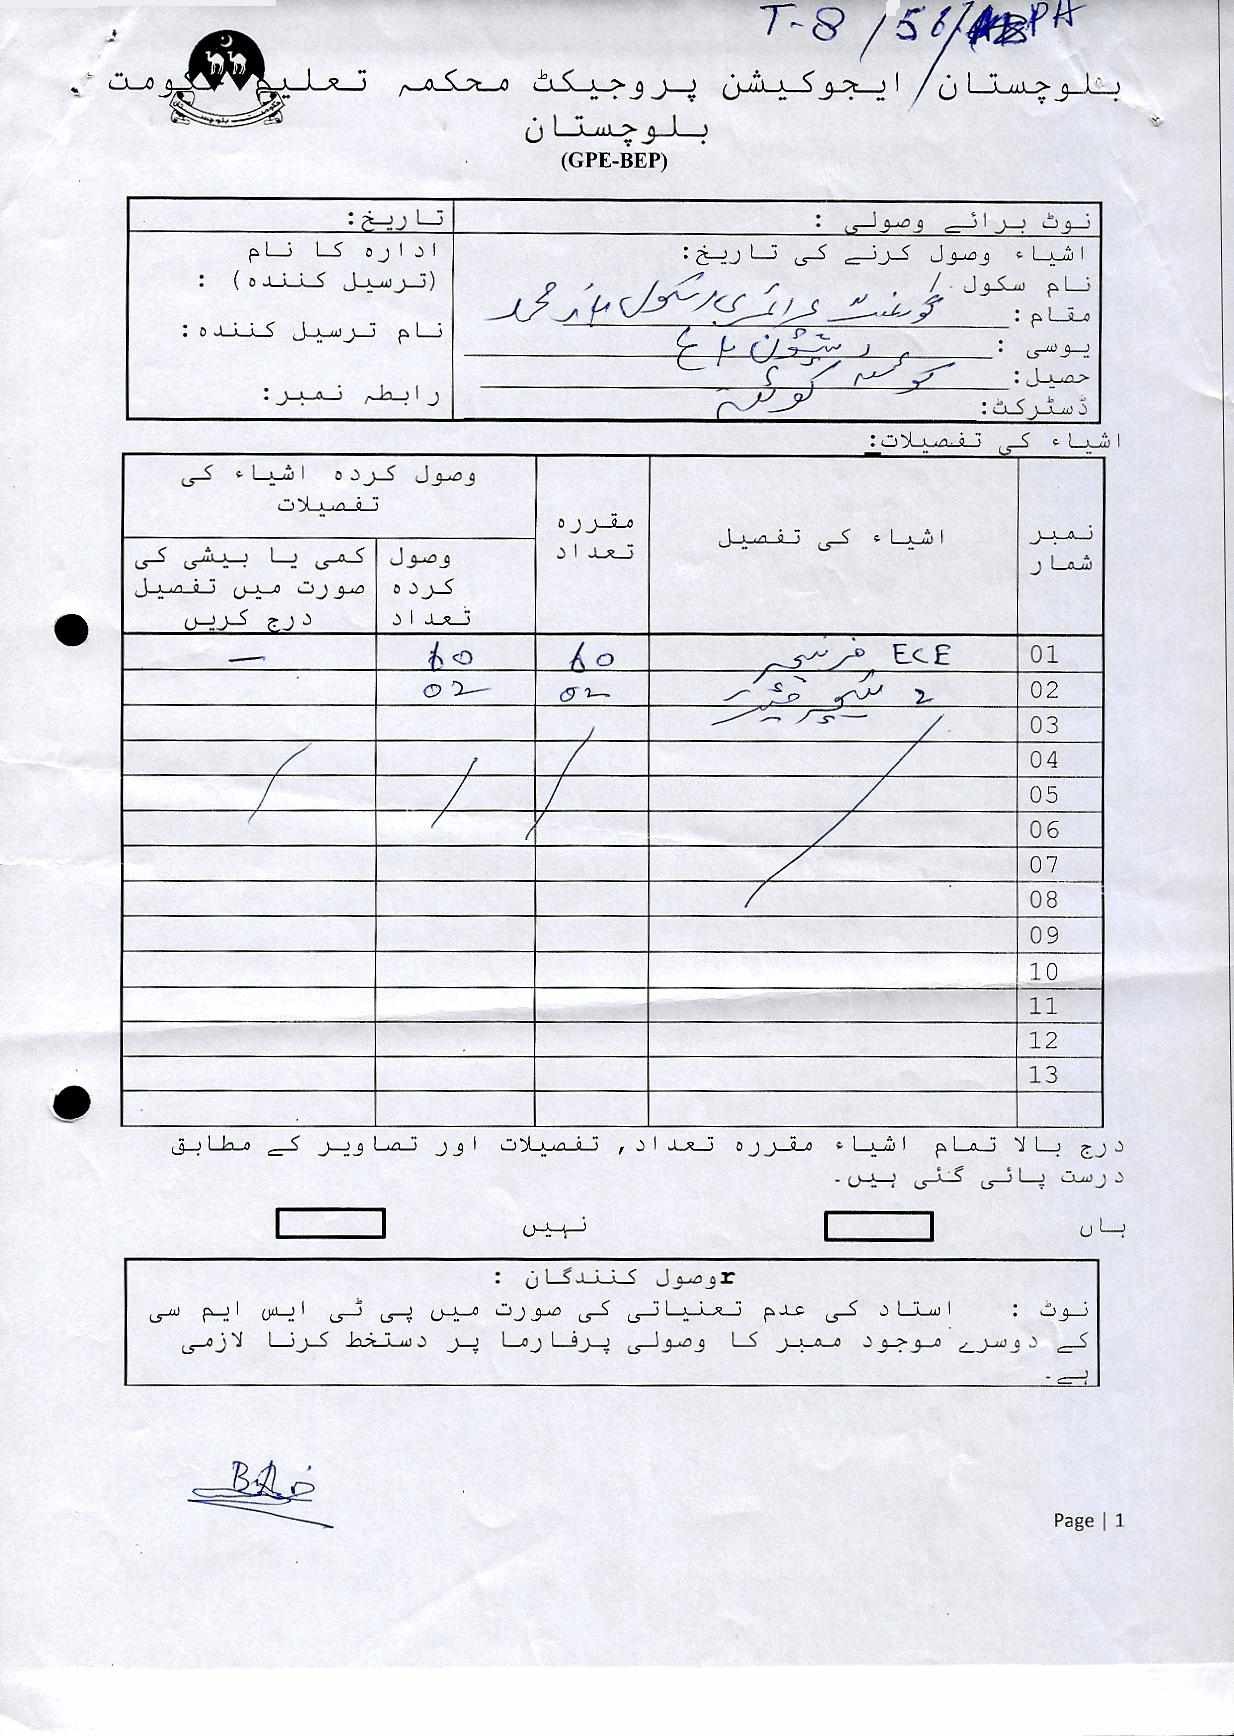 T-8 / 56/
بلوچستان ایجوکیشن پروجیکٹ محکمہ تعلیم حکومت
بلوچستان
(GPE-BEP)
نوٹ برائے وصولی :
تاریخ:
اشیاء وصول کرنے کی تاریخ:
ادارہ کا نام
نام سکول /
(ترسیل کنندہ) :
مقام: گورنمنٹ پرائمری سکول محمد
نام ترسیل کنندہ:
یوسی : پشتون باغ
حصیل: کوئٹہ
رابطہ نمبر:
ڈسٹرکٹ: کوئٹہ
اشیاء کی تفصیلات:
نمبر شمار
اشیاء کی تفصیل
مقررہ تعداد
وصول کردہ اشیاء کی تفصیلات
وصول کردہ تعداد
کمی یا بیشی کی صورت میں تفصیل درج کریں
01 ECE فرنیچر 60 60 —
02 2 02 02
03
04
05
06
07
08
09
10
11
12
13
درج بالا تمام اشیاء مقررہ تعداد, تفصیلات اور تصاویر کے مطابق
درست پائی گئی ہیں۔
ہاں نہیں
rوصول کنندگان :
نوٹ : استاد کی عدم تعنیاتی کی صورت میں پی ٹی ایس ایم سی
کے دوسرے موجود ممبر کا وصولی پرفارما پر دستخط کرنا لازمی
ہے۔
Page | 1